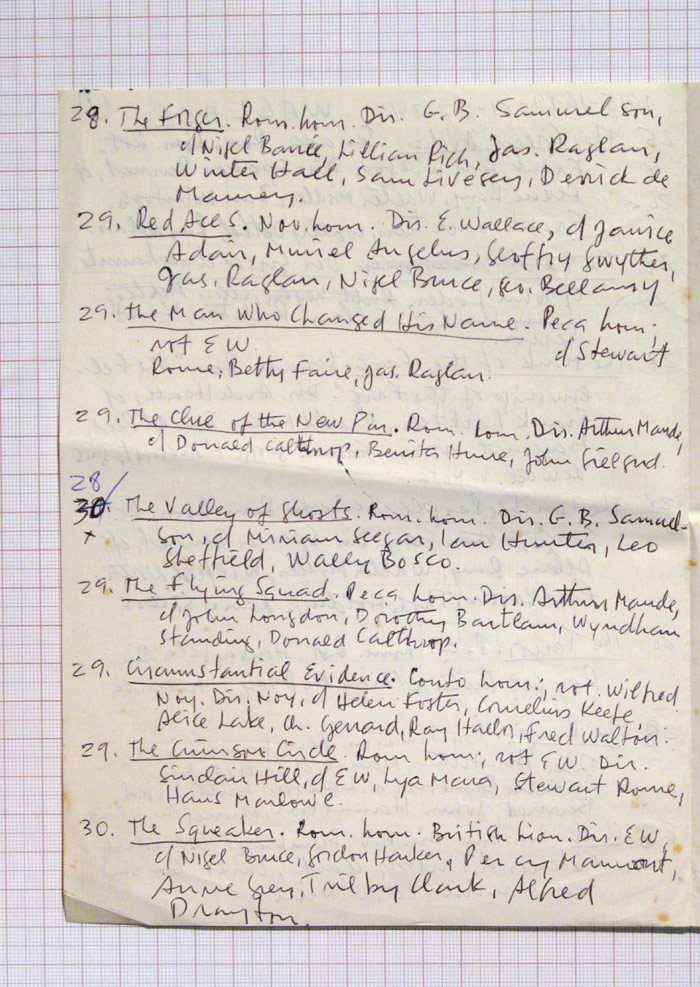 28. The Forger. Rom. hom. Dir. G. B. Samuelson,
c/ Nigel Barrie, Lillian Rich, Jas. Raglan,
Winter Hall, Sam Livesey, Derrick de
Marney.
29. Red Aces. Nov. hom. Dir. E. Wallace, c/ Janice
Adair, Muriel Angelus, Geoffry Gwyther,
Jas. Raglan, Nigel Bruce, Geo. Bellamy
29. The Man Who Changed His Name. Peça hom;
rot E W
c/ Stewart
Rome, Betty Faire, Jas. Raglan.
29. The Clue of the New Pin. Rom. hom. Dir. Arthur Maude,
c/ Donald Calthrop, Benita Hume, John Gielgud.
28
30. The Valley of Ghosts. Rom. hom. Dir. G. B. Samuel-
x son, c/ Miriam Seegar, Ian Hunter, Leo
Sheffield, Wally Bosco.
29. The Flying Squad. Peça hom. Dir. Arthur Maude,
c/ John Longdon, Dorothy Bartlam, Wyndham
Standing, Donald Calthrop.
29. Circumstantial Evidence. Conto hom; rot. Wilfred
Noy. Dir. Noy, c/ Helen Foster, Cornelius Keefe,
Alice Lake, Ch. Gerrard, Ray Hallor, Fred Walton.
29. The Crimson Circle. Rom hom; rot EW. Dir.
Sinclair Hill, c/ EW, Lya Mara, Stewart Rome,
Hans Marlowe.
30. The Squeaker. Rom. hom. British Lion. Dir. EW,
c/ Nigel Bruce, Gordon Harker, Percy Marmont,
Anne Grey, Trilby Clark, Alfred
Drayton.